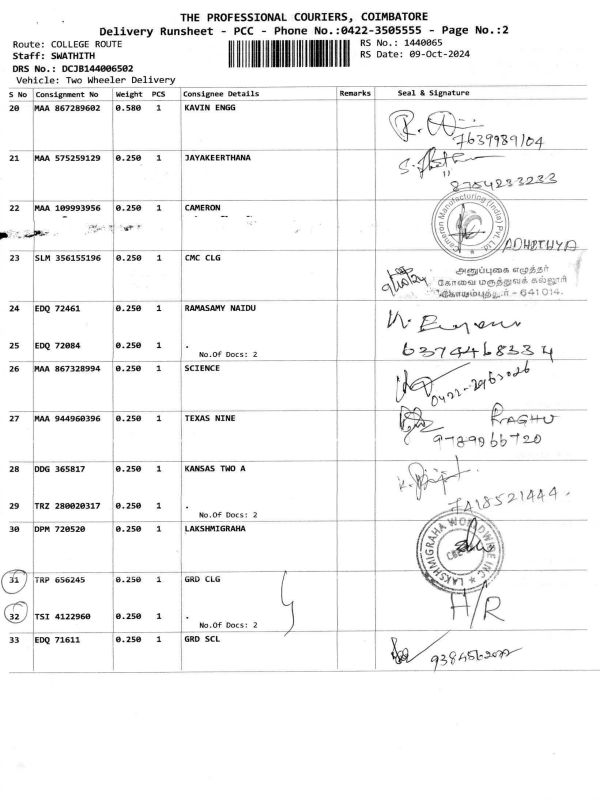 THE PROFESSIONAL COURIERS, COIMBATORE
Delivery Runsheet - PCC - Phone No.:0422-3505555 - Page No.:2
Route: COLLEGE ROUTE RS No.: 1440065
Staff: SWATHITH RS Date: 09-Oct-2024
DRS No.: DCJB144006502
Vehicle: Two Wheeler Delivery
S No Consignment No Weight PCS Consignee Details Remarks Seal & Signature
20 MAA 867289602 0.580 1 KAVIN ENGG
7639989104
21 MAA 575259129 0.250 1 JAYAKEERTHANA
8754233233
22 MAA 109993956 0.250 1 CAMERON
Cameron Manufacturing (India) Pvt. Ltd
ADHITHYA
23 SLM 356155196 0.250 1 CMC CLG
அனுப்புகை எழுத்தர்
கோவை மருத்துவக் கல்லூரி
கோயம்புத்தூர் - 641 014.
24 EDQ 72461 0.250 1 RAMASAMY NAIDU
25 EDQ 72084 0.250 1 .
No.Of Docs: 2
6374468334
26 MAA 867328994 0.250 1 SCIENCE
27 MAA 944960396 0.250 1 TEXAS NINE
RAGHU
9789966720
28 DDG 365817 0.250 1 KANSAS TWO A
29 TRZ 280020317 0.250 1 .
No.Of Docs: 2
7418521444.
30 DPM 720520 0.250 1 LAKSHMIGRAHA
LAKSHMIGRAHA WORLDWIDE INC
31 TRP 656245 0.250 1 GRD CLG
H/R
32 TSI 4122960 0.250 1 .
No.Of Docs: 2
33 EDQ 71611 0.250 1 GRD SCL